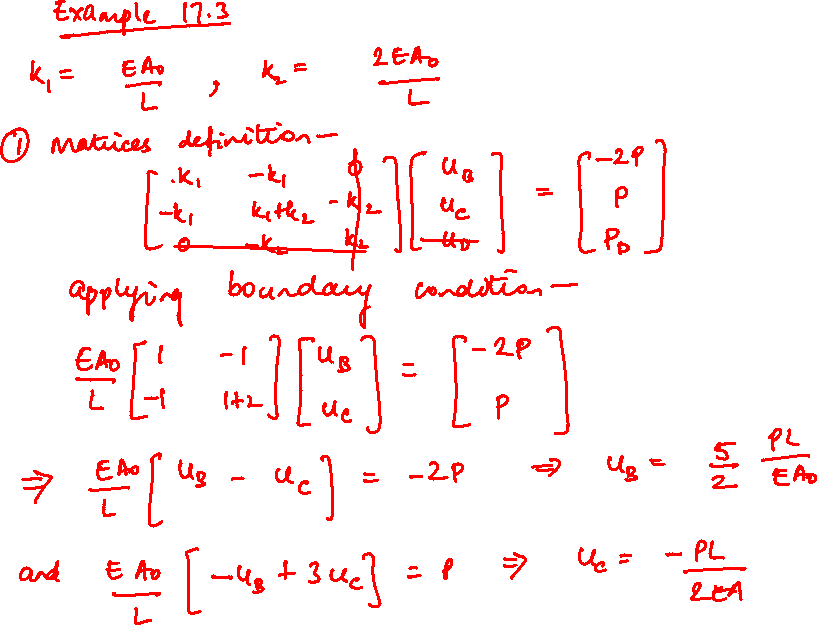 Example 17.3
k₁ = EA₀/L , k₂ = 2EA₀/L
① Matrices definition –
[k₁ -k₁ 0; -k₁ k₁+k₂ -k₂; 0 -k₂ k₂] [u_B; u_C; u_D] = [-2P; P; P_D]
applying boundary condition –
EA₀/L [1 -1; -1 1+2] [u_B; u_C] = [-2P; P]
⇒ EA₀/L [u_B - u_C] = -2P ⇒ u_B = 5/2 PL/EA₀
and EA₀/L [-u_B + 3u_C] = P ⇒ u_C = -PL/2EA